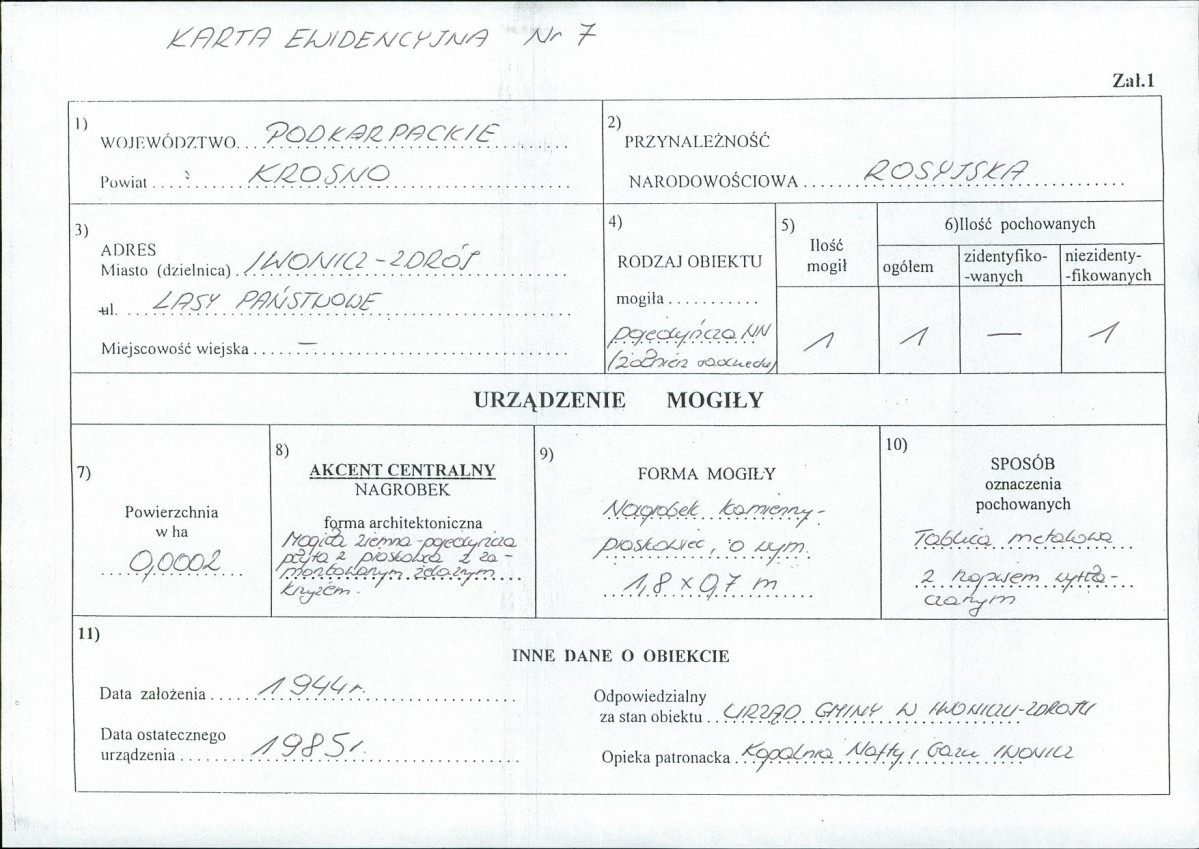 KARTA EWIDENCYJNA Nr 7
Zał.1
1)
WOJEWÓDZTWO PODKARPACKIE
Powiat KROSNO
2)
PRZYNALEŻNOŚĆ
NARODOWOŚCIOWA ROSYJSKA
3)
ADRES
Miasto (dzielnica) IWONICZ-ZDRÓJ
ul. LASY PAŃSTWOWE
Miejscowość wiejska —
4)
RODZAJ OBIEKTU
mogiła
pojedyńcza NN
(żołnierz radziecki)
5)
Ilość
mogił
1
6)Ilość pochowanych
ogółem
1
zidentyfiko-
-wanych
—
niezidenty-
-fikowanych
1
URZĄDZENIE MOGIŁY
7)
Powierzchnia
w ha
0,0002
8)
AKCENT CENTRALNY
NAGROBEK
forma architektoniczna
Mogiła ziemna-pojedyńcza
płyta z piaskowca z za-
montowanym żelaznym
krzyżem.
9)
FORMA MOGIŁY
Nagrobek kamienny-
piaskowiec, o wym.
1,8 x 0,7 m
10)
SPOSÓB
oznaczenia
pochowanych
Tablica metalowa
z napisem wytło-
czonym
11)
INNE DANE O OBIEKCIE
Data założenia 1944r.
Data ostatecznego
urządzenia 1985r.
Odpowiedzialny
za stan obiektu URZĄD GMINY W IWONICZU-ZDROJU
Opieka patronacka Kopalnia Nafty i Gazu IWONICZ